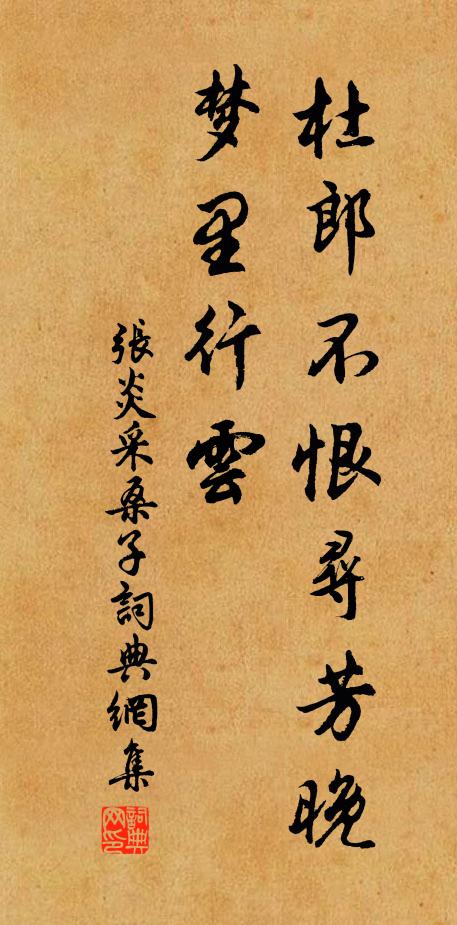 杜郎不恨尋芳晚
梦里行雲
張炎采桑子詞典網集
詞典网印